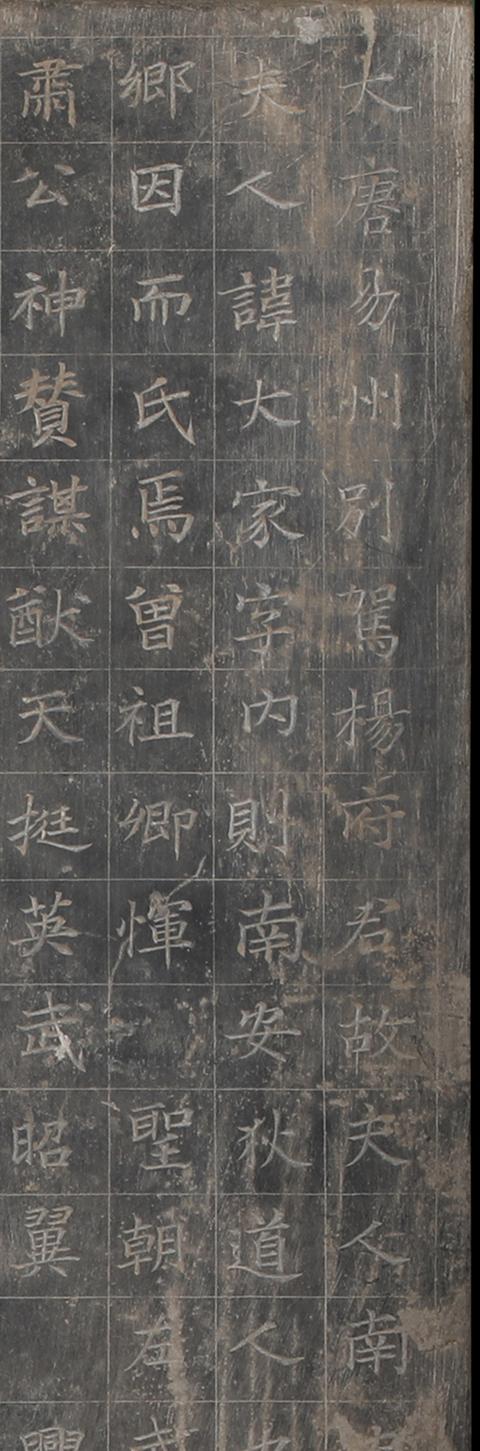 大唐易州別駕楊府君故夫人南
夫人諱大家字內則南安狄道人也
鄉因而氏焉曾祖卿惲聖朝左武
肅公神贊謀猷天挺英武昭翼興